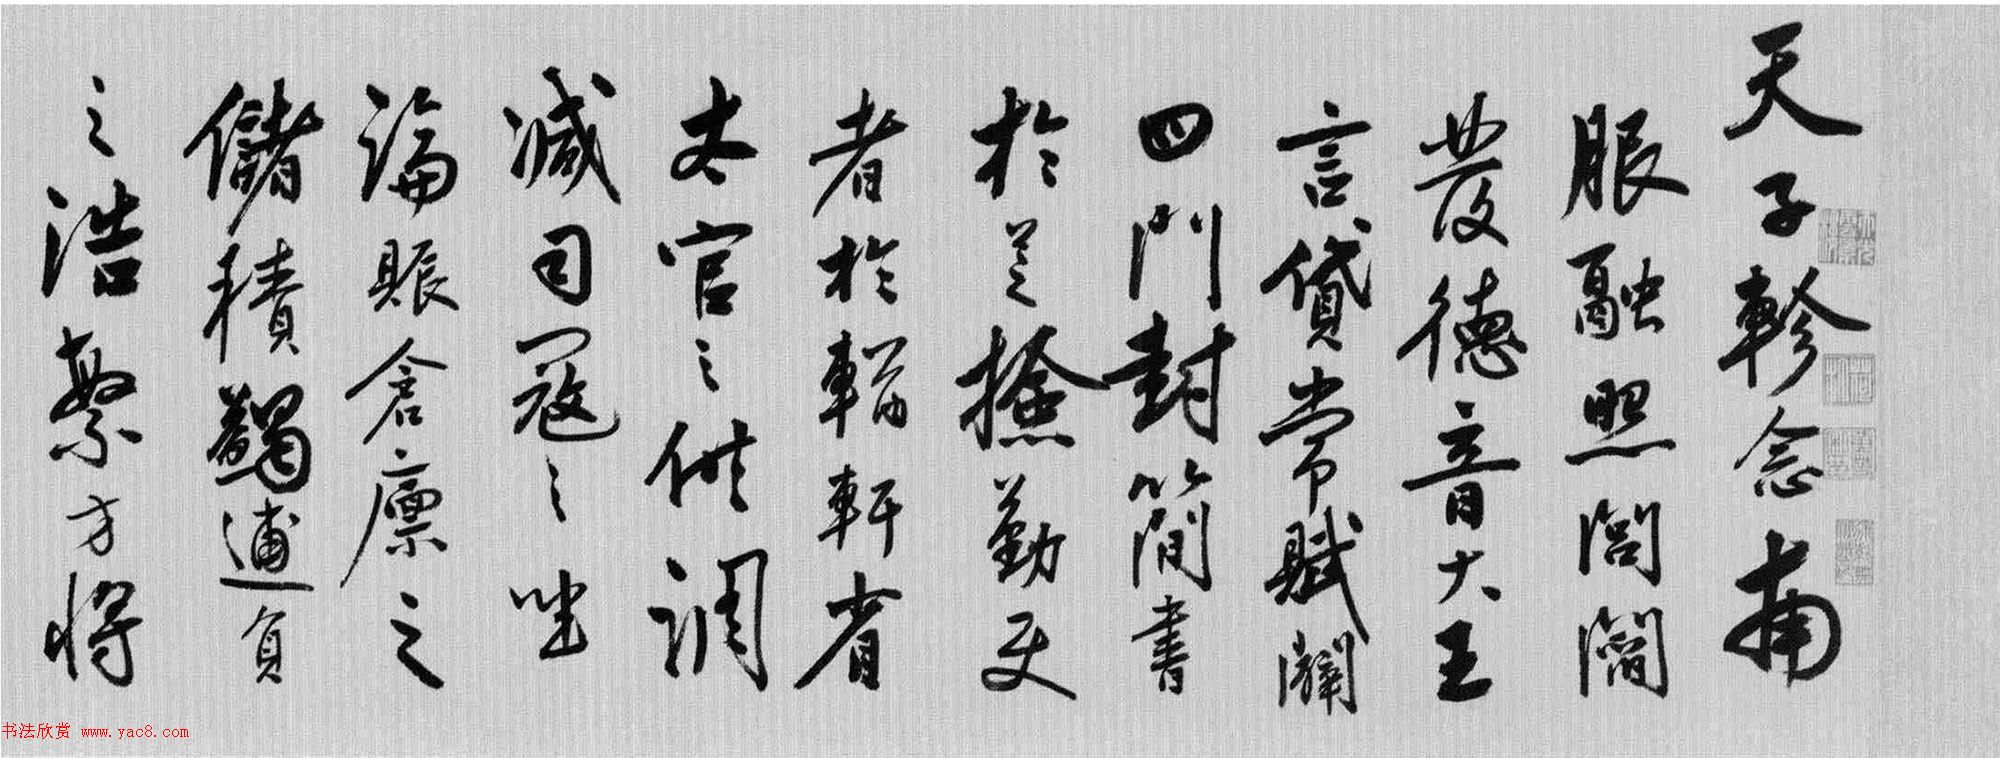 天子軫念南
服融照閭閻
發德音大王
言貸常賦闢
四門封簡書
於芝撿勤吏
者於輶軒省
大官之供調
減司寇之
論賑倉廩之
儲積蠲逋負
之浩繁方将
书法欣赏 www.yac8.com